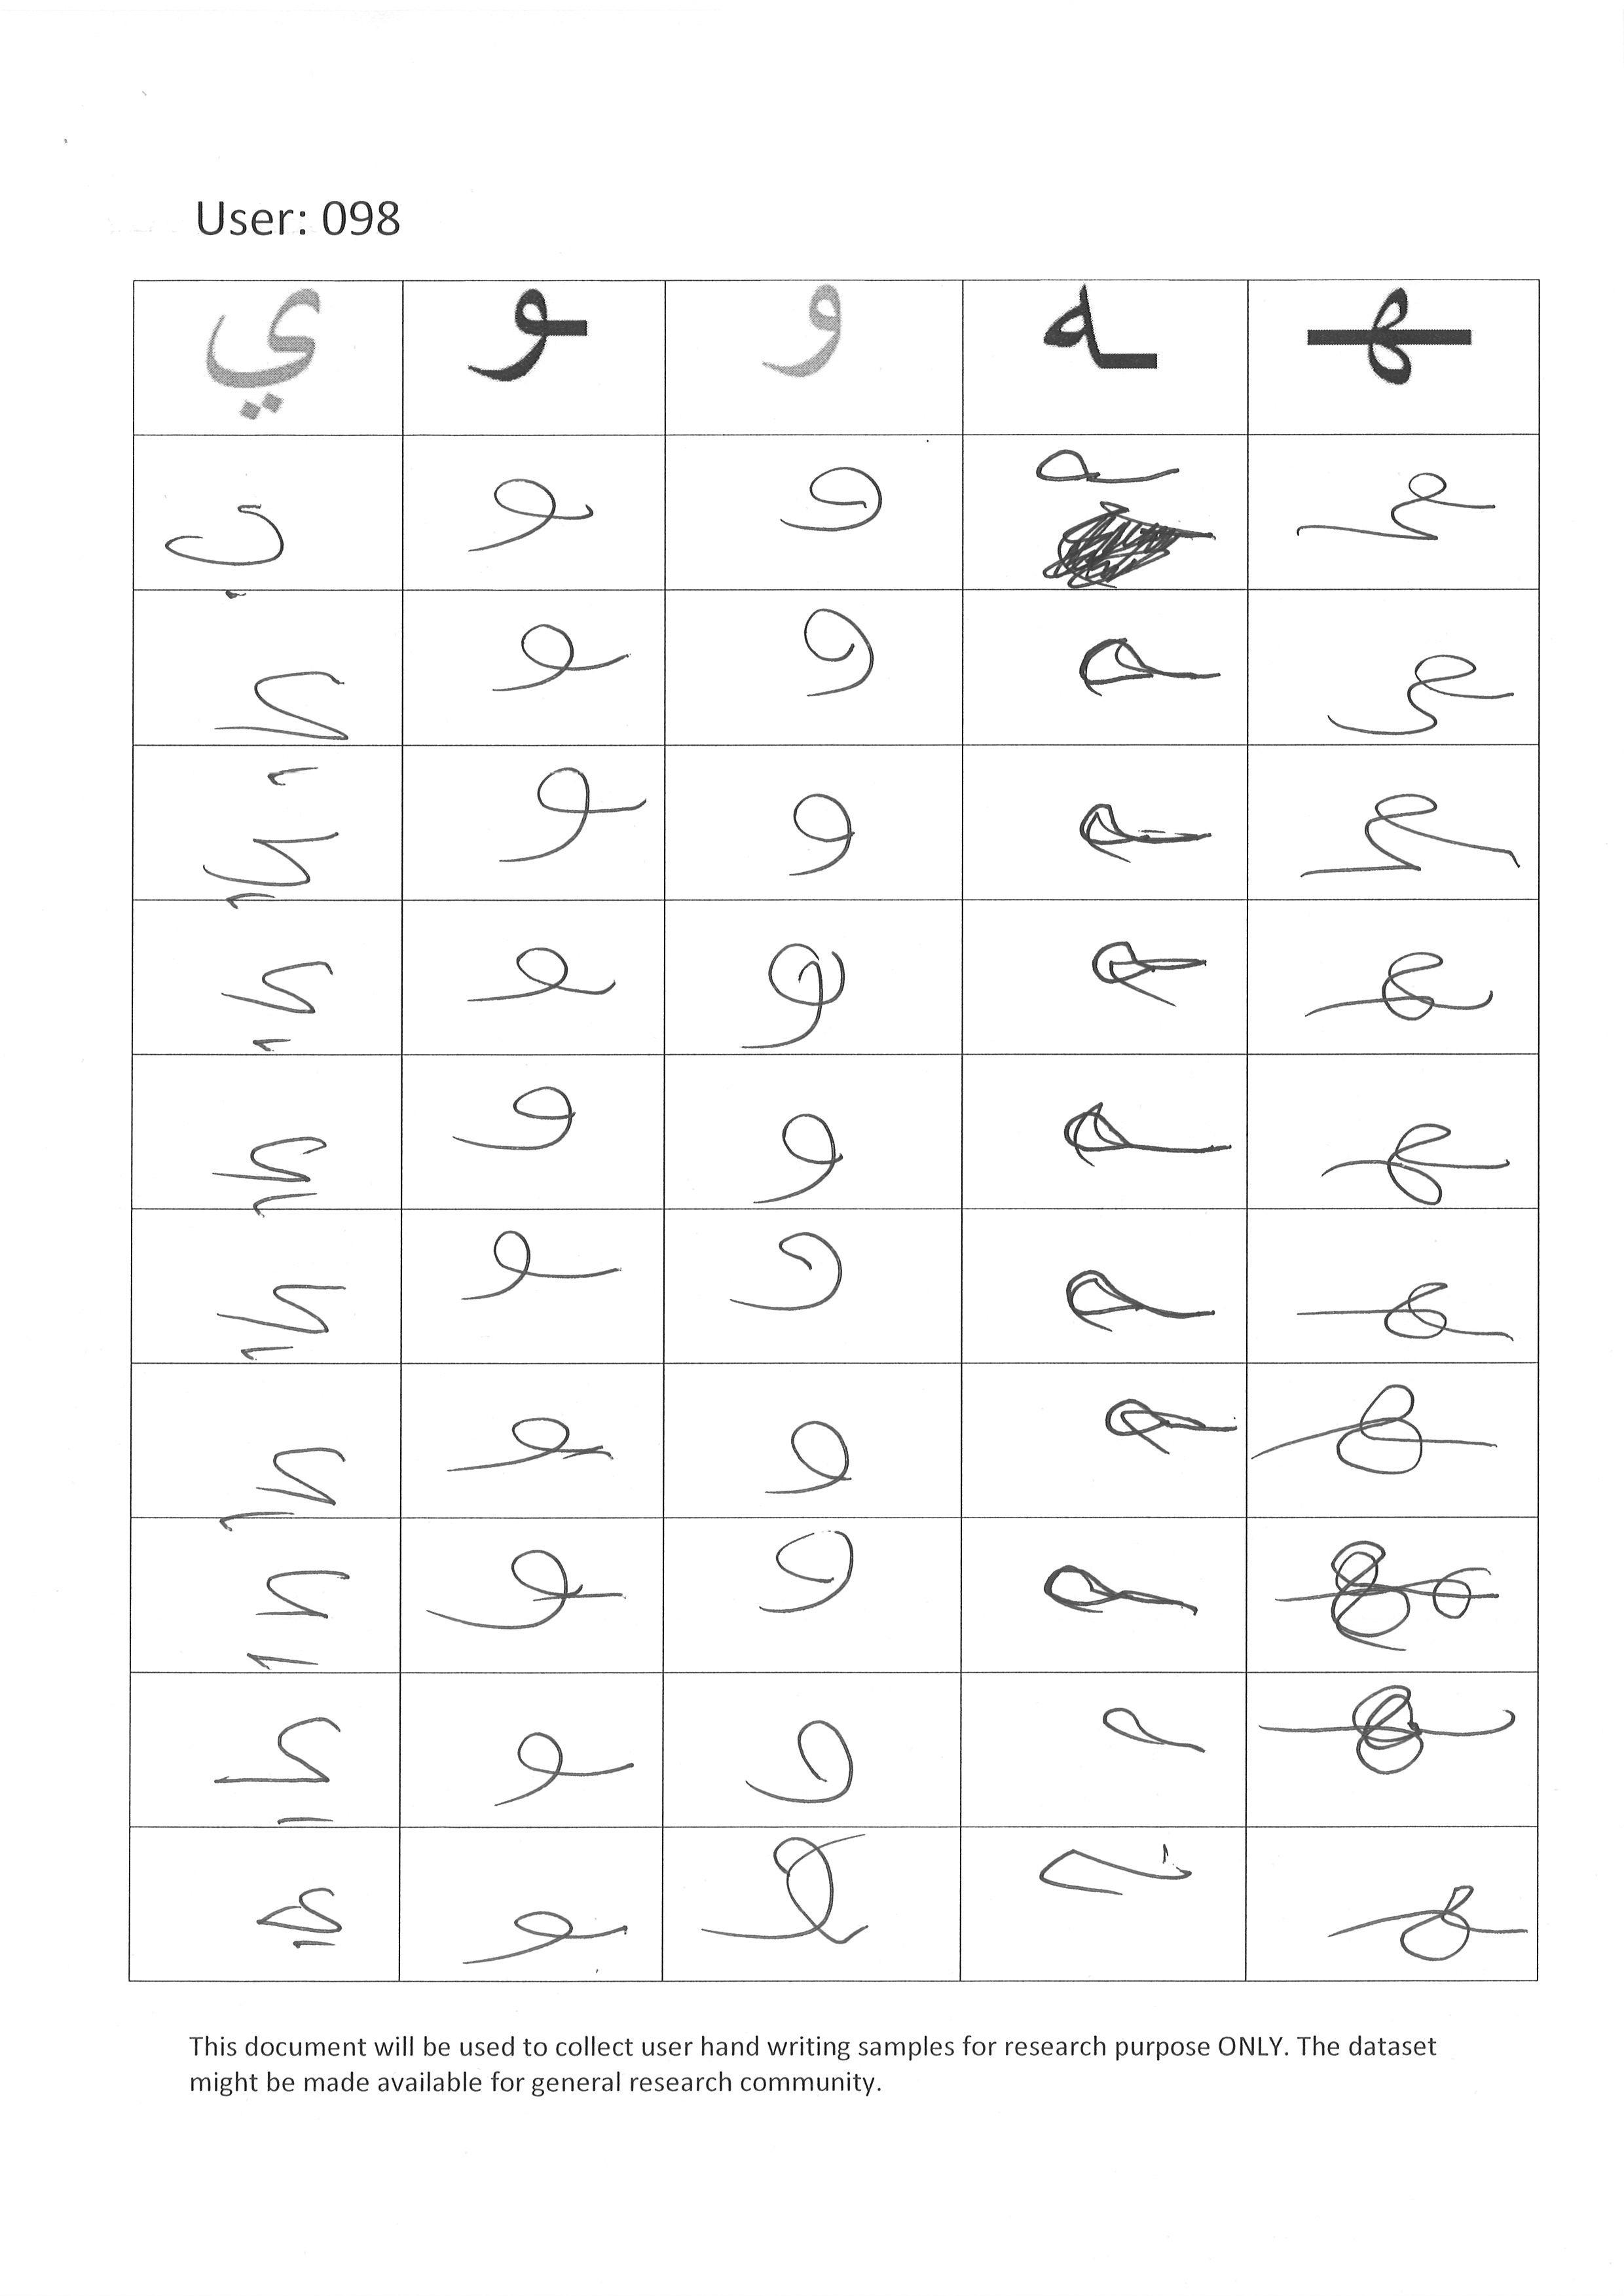 User: 098
ي ـو و ـه ـهـ
ي ـو و ـه ـهـ
ي ـو و ـه ـهـ
ي ـو و ـه ـهـ
ي ـو و ـه ـهـ
ي ـو و ـه ـهـ
ي ـو و ـه ـهـ
ي ـو و ـه ـهـ
ي ـو و ـه ـهـ
ي ـو و ـه ـهـ
ي ـو و ـه ـهـ
This document will be used to collect user hand writing samples for research purpose ONLY. The dataset
might be made available for general research community.